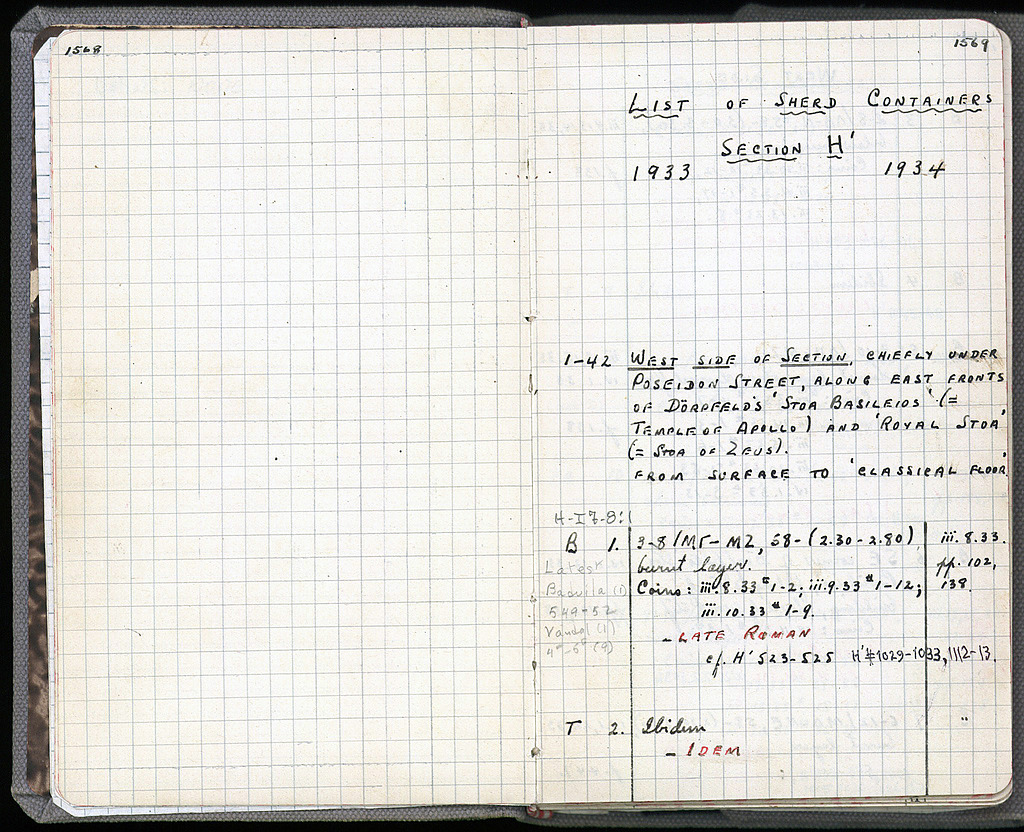 1568
1569
LIST OF SHERD CONTAINERS
SECTION H'
1933 1934
1-42 WEST SIDE OF SECTION, CHIEFLY UNDER
POSEIDON STREET, ALONG EAST FRONTS
OF DÖRPFELD'S 'STOA BASILEIOS' (=
TEMPLE OF APOLLO) AND 'ROYAL STOA'
(= STOA OF ZEUS).
FROM SURFACE TO 'CLASSICAL FLOOR'
H-I 7-8:1
B 1. 3-8/ΜΓ-ΜΖ, 58-(2.30-2.80) iii.8.33.
Latest burnt layer. pp. 102,
Baduila (1) Coins: iii.8.33 #1-2; iii.9.33 #1-12; 138.
549-52 iii.10.33 #1-9.
Vandal (1) - LATE ROMAN
4th-5th (9) cf. H' 523-525 H'#1029-1033, 1112-13.
T 2. Ibidem "
- IDEM